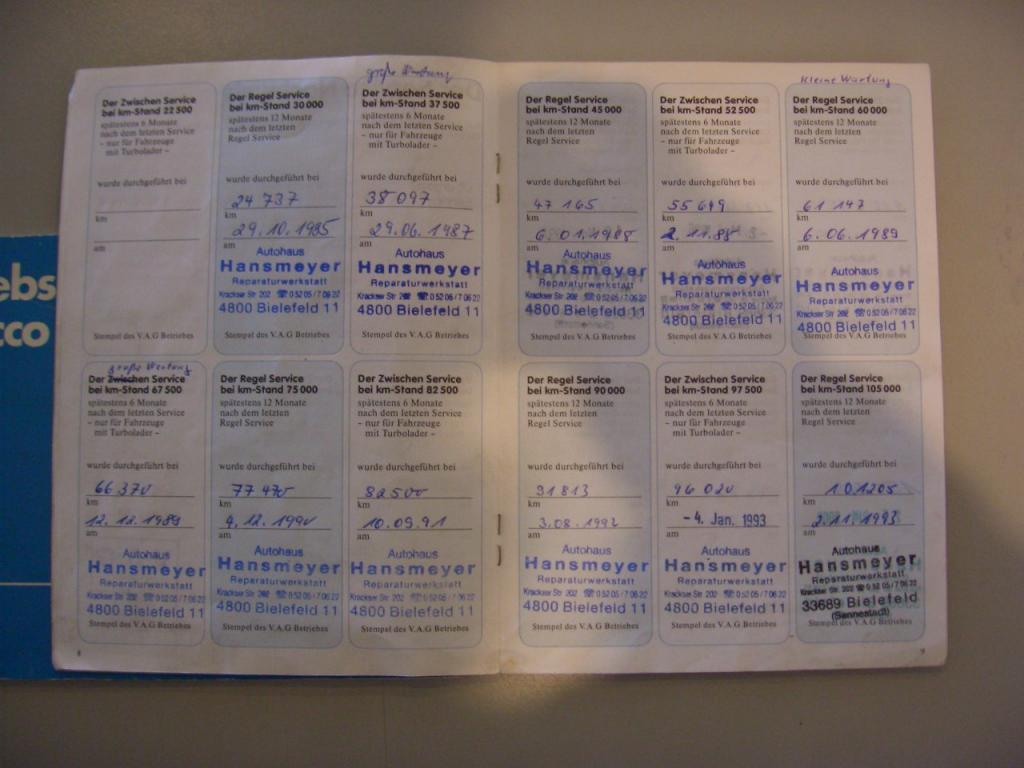 ebs
cco
Der Zwischen Service
bei km-Stand 22 500
spätestens 6 Monate
nach dem letzten Service
- nur für Fahrzeuge
mit Turbolader -
wurde durchgeführt bei
km
am
Stempel des V.A.G Betriebes
Der Regel Service
bei km-Stand 30 000
spätestens 12 Monate
nach dem letzten
Regel Service
wurde durchgeführt bei
24 737
km
29.10.1985
am
Autohaus
Hansmeyer
Reparaturwerkstatt
Krackser Str. 202 ☎ 0 52 05 / 7 06 22
4800 Bielefeld 11
Stempel des V.A.G Betriebes
große Wartung
Der Zwischen Service
bei km-Stand 37 500
spätestens 6 Monate
nach dem letzten Service
- nur für Fahrzeuge
mit Turbolader -
wurde durchgeführt bei
38 097
km
29.06.1987
am
Autohaus
Hansmeyer
Reparaturwerkstatt
Krackser Str. 202 ☎ 0 52 05 / 7 06 22
4800 Bielefeld 11
Stempel des V.A.G Betriebes
Der Regel Service
bei km-Stand 45 000
spätestens 12 Monate
nach dem letzten
Regel Service
wurde durchgeführt bei
47 165
km
6.01.1988
am
Autohaus
Hansmeyer
Reparaturwerkstatt
Krackser Str. 202 ☎ 0 52 05 / 7 06 22
4800 Bielefeld 11
Stempel des V.A.G Betriebes
Der Zwischen Service
bei km-Stand 52 500
spätestens 6 Monate
nach dem letzten Service
- nur für Fahrzeuge
mit Turbolader -
wurde durchgeführt bei
55 649
km
2.11.88
am
Autohaus
Hansmeyer
Reparaturwerkstatt
Krackser Str. 202 ☎ 0 52 05 / 7 06 22
4800 Bielefeld 11
Stempel des V.A.G Betriebes
Kleine Wartung
Der Regel Service
bei km-Stand 60 000
spätestens 12 Monate
nach dem letzten
Regel Service
wurde durchgeführt bei
61 147
km
6.06.1989
am
Autohaus
Hansmeyer
Reparaturwerkstatt
Krackser Str. 202 ☎ 0 52 05 / 7 06 22
4800 Bielefeld 11
Stempel des V.A.G Betriebes
große Wartung
Der Zwischen Service
bei km-Stand 67 500
spätestens 6 Monate
nach dem letzten Service
- nur für Fahrzeuge
mit Turbolader -
wurde durchgeführt bei
66 370
km
12.12.1989
am
Autohaus
Hansmeyer
Reparaturwerkstatt
Krackser Str. 202 ☎ 0 52 05 / 7 06 22
4800 Bielefeld 11
Stempel des V.A.G Betriebes
Der Regel Service
bei km-Stand 75 000
spätestens 12 Monate
nach dem letzten
Regel Service
wurde durchgeführt bei
77 470
km
4.12.1990
am
Autohaus
Hansmeyer
Reparaturwerkstatt
Krackser Str. 202 ☎ 0 52 05 / 7 06 22
4800 Bielefeld 11
Stempel des V.A.G Betriebes
Der Zwischen Service
bei km-Stand 82 500
spätestens 6 Monate
nach dem letzten Service
- nur für Fahrzeuge
mit Turbolader -
wurde durchgeführt bei
82 500
km
10.09.91
am
Autohaus
Hansmeyer
Reparaturwerkstatt
Krackser Str. 202 ☎ 0 52 05 / 7 06 22
4800 Bielefeld 11
Stempel des V.A.G Betriebes
Der Regel Service
bei km-Stand 90 000
spätestens 12 Monate
nach dem letzten
Regel Service
wurde durchgeführt bei
91 813
km
3.08.1992
am
Autohaus
Hansmeyer
Reparaturwerkstatt
Krackser Str. 202 ☎ 0 52 05 / 7 06 22
4800 Bielefeld 11
Stempel des V.A.G Betriebes
Der Zwischen Service
bei km-Stand 97 500
spätestens 6 Monate
nach dem letzten Service
- nur für Fahrzeuge
mit Turbolader -
wurde durchgeführt bei
96 020
km
-4. Jan. 1993
am
Autohaus
Hansmeyer
Reparaturwerkstatt
Krackser Str. 202 ☎ 0 52 05 / 7 06 22
4800 Bielefeld 11
Stempel des V.A.G Betriebes
Der Regel Service
bei km-Stand 105 000
spätestens 12 Monate
nach dem letzten
Regel Service
wurde durchgeführt bei
101205
km
2.11.1993
am
Autohaus
Hansmeyer
Reparaturwerkstatt
Krackser Str. 202 ☎ 0 52 05 / 7 06 22
33689 Bielefeld
(Sennestadt)
Stempel des V.A.G Betriebes
8
9